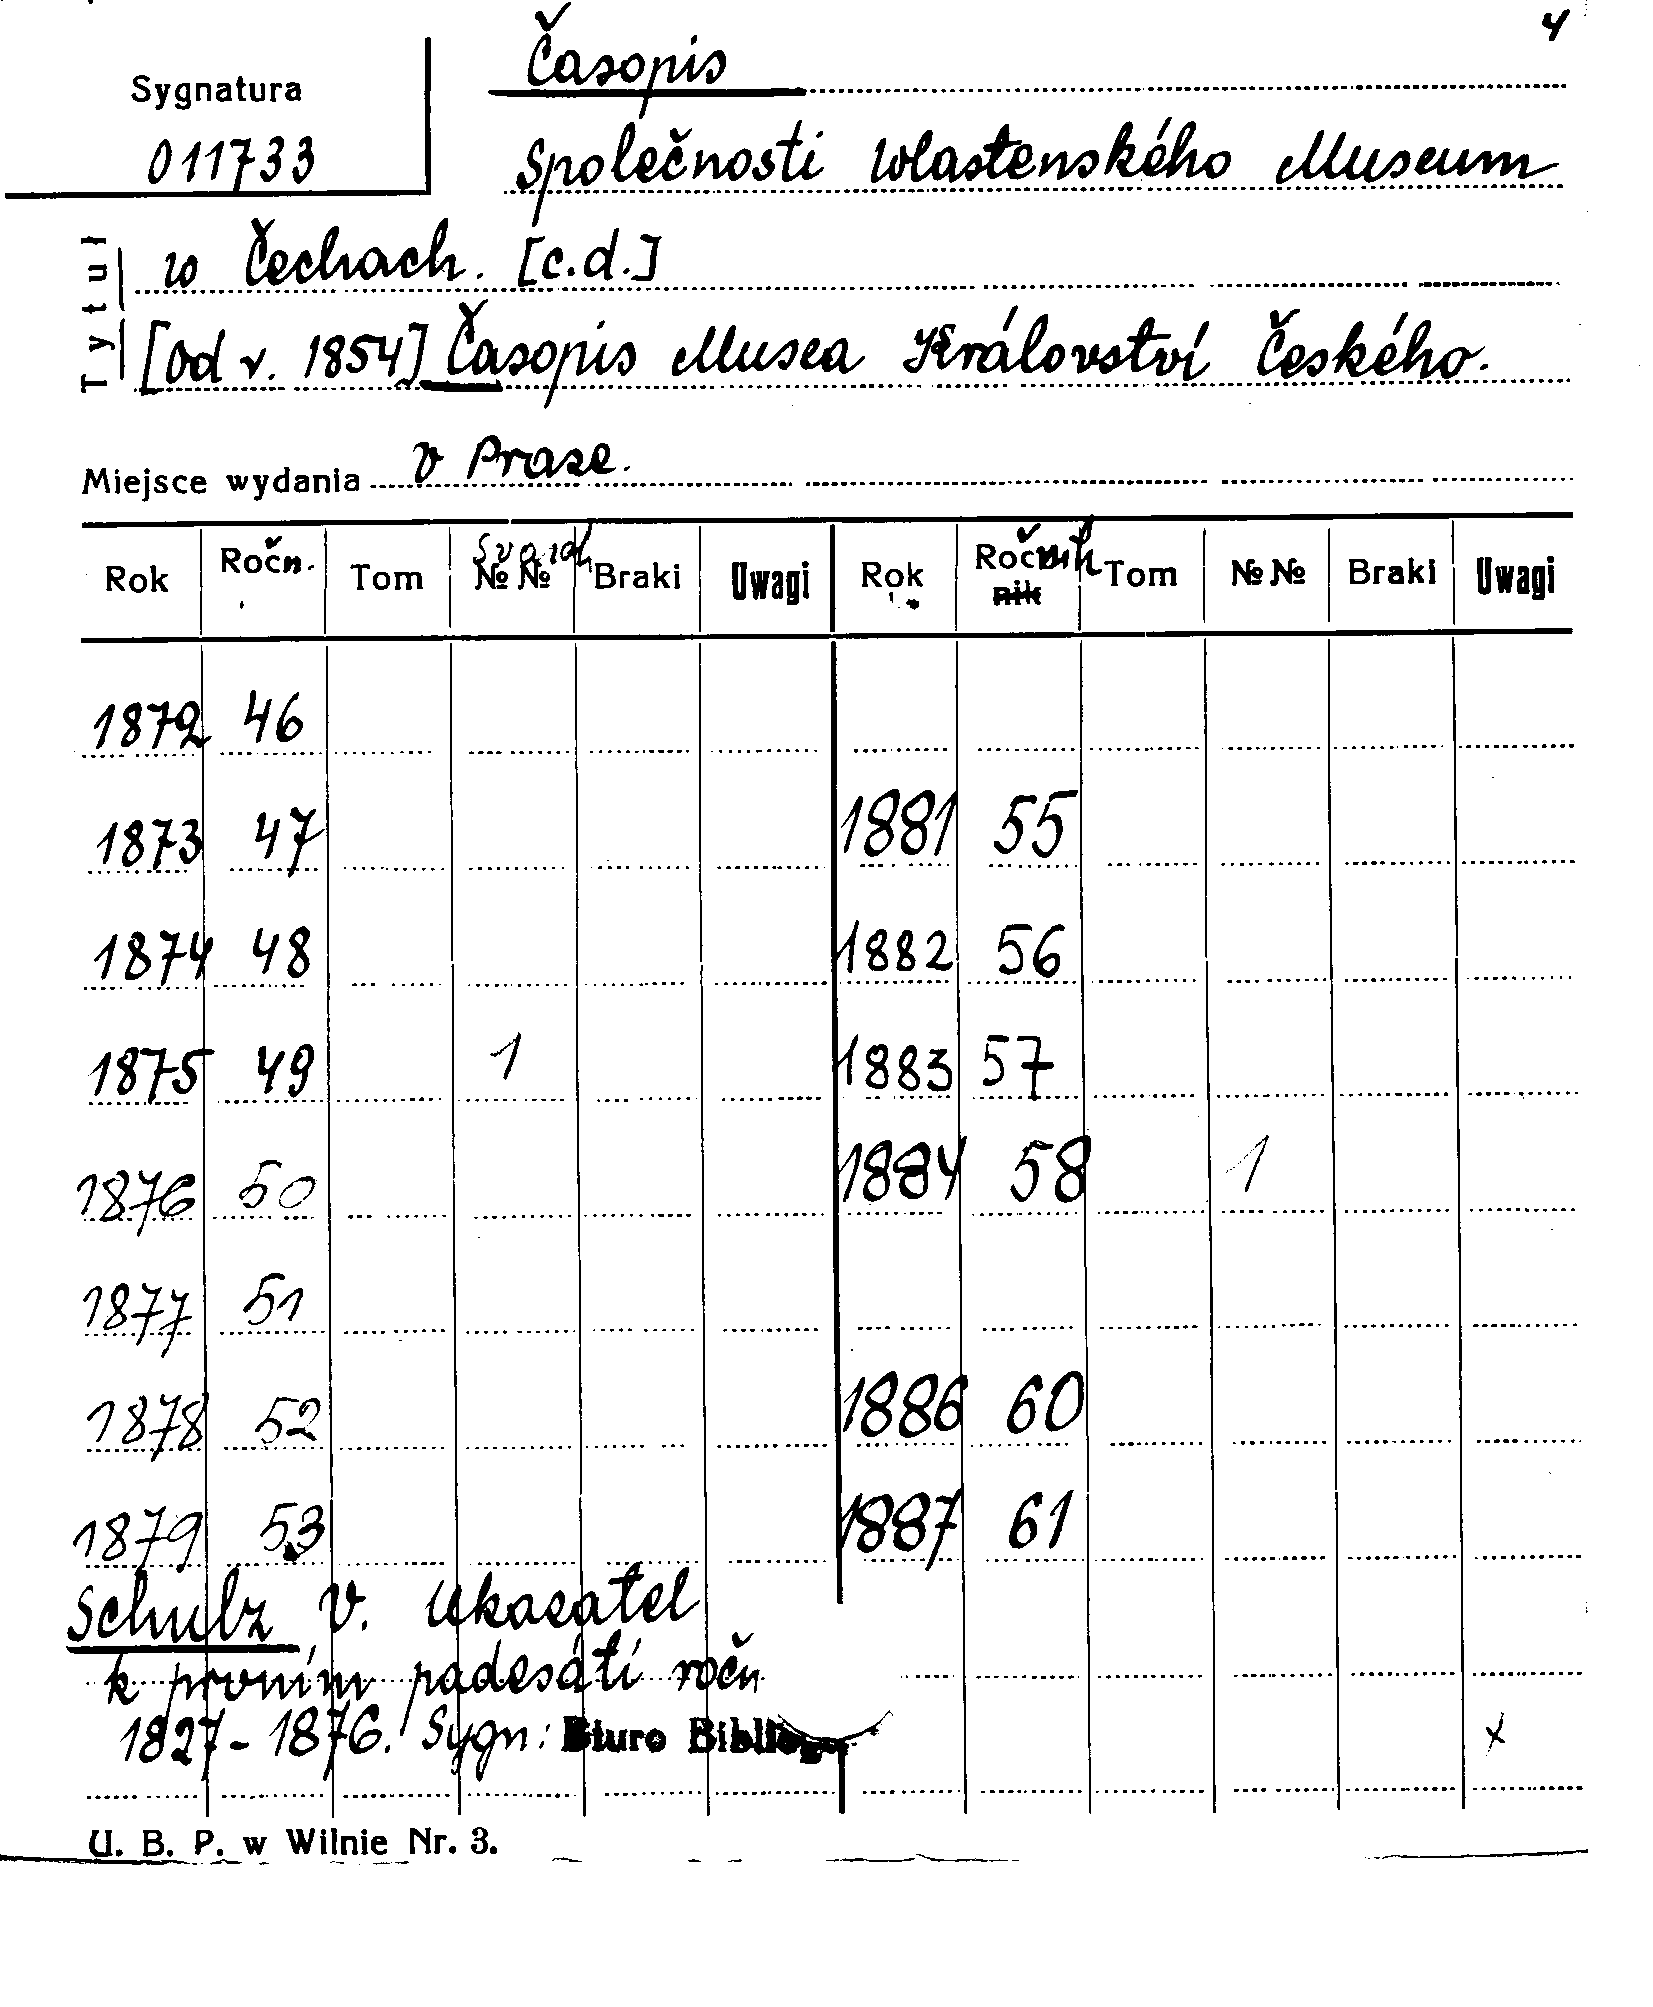 4
Časopis
Sygnatura
011733
Společnosti wlastenského Museum
w Čechach. [c.d.]
Tytuł
[Od r. 1854] Časopis Musea Království Českého.
Miejsce wydania v Praze.
Rok Ročn. Tom №№ Braki Uwagi Rok Ročnik Tom №№ Braki Uwagi
nik
1872 46
1873 47 1881 55
1874 48 1882 56
1875 49 1 1883 57
1876 50 1884 58 1
1877 51
1878 52 1886 60
1879 53 1887 61
Schulz, V. Ukazatel
k prvním padesáti ročn
1827-1876. Sygn: Biuro
x
U. B. P. w Wilnie Nr. 3.